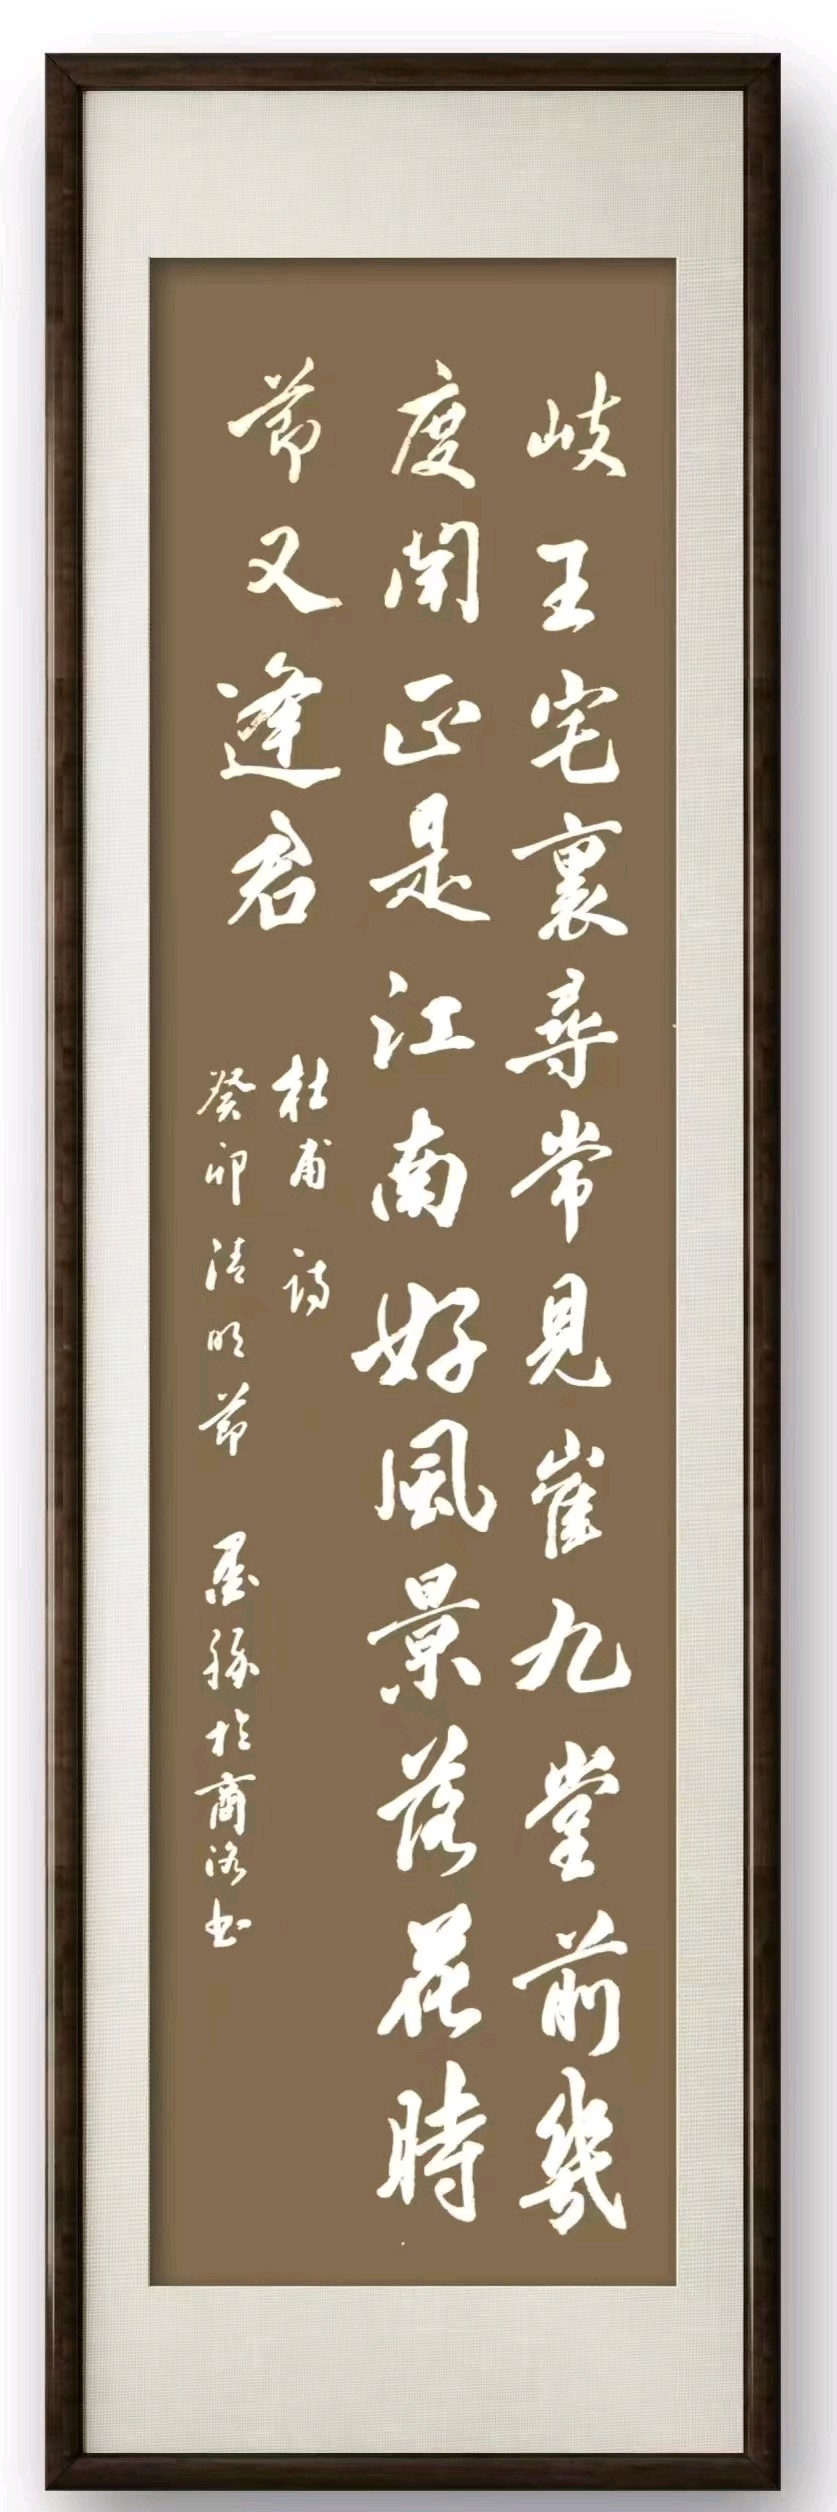 岐王宅裏尋常見崔九堂前幾
度聞正是江南好風景落花時
節又逢君
杜甫詩
癸卯清明節 墨於商洛书